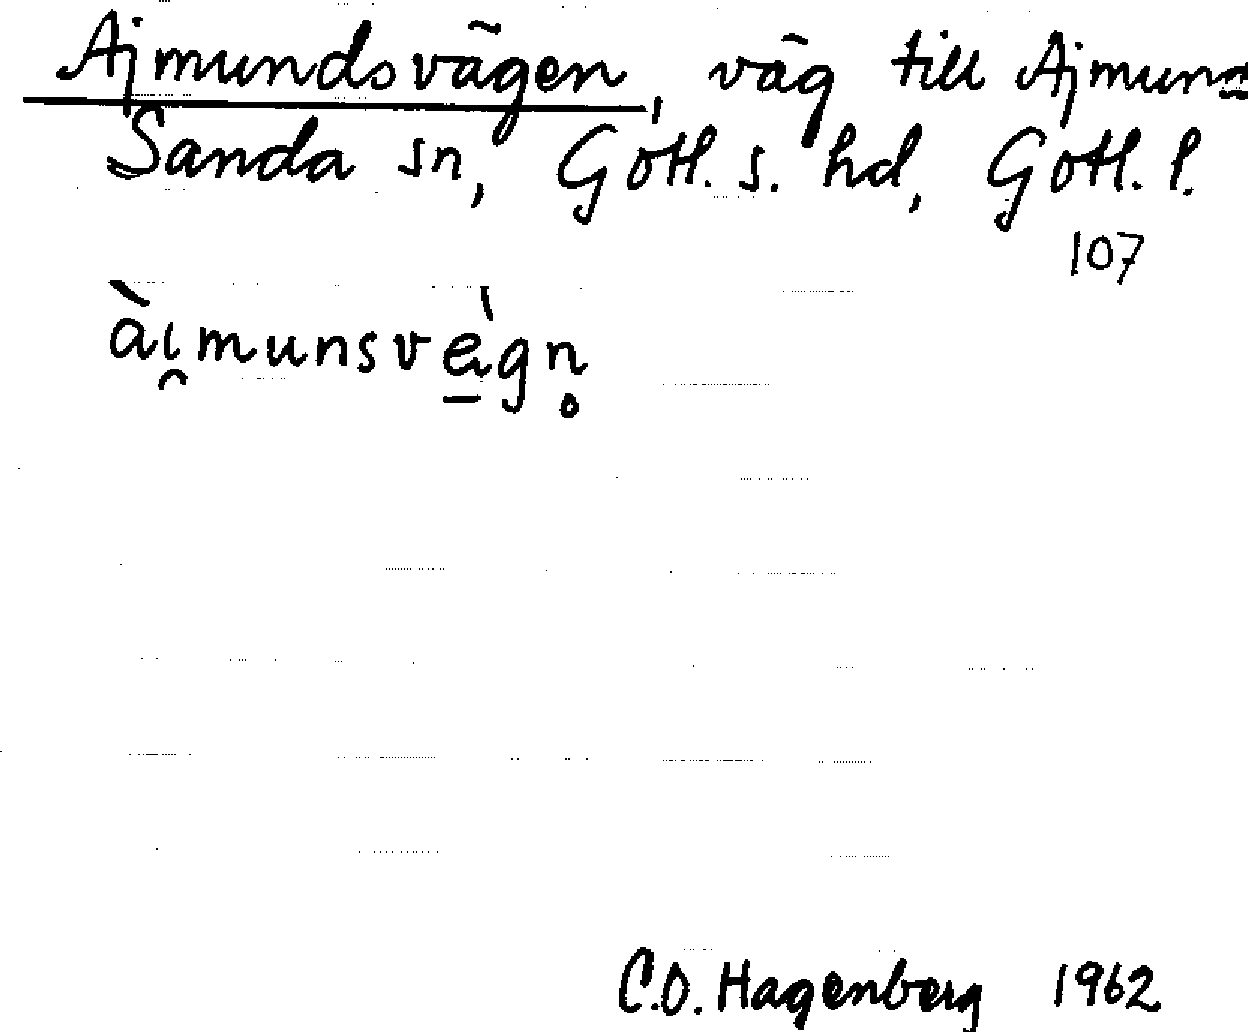 Ajmundsvägen, väg till Ajmund
Sanda sn, Gotl. s. hd, Gotl. l.
107
àι̯munsvègn̥
C.O. Hagenberg 1962